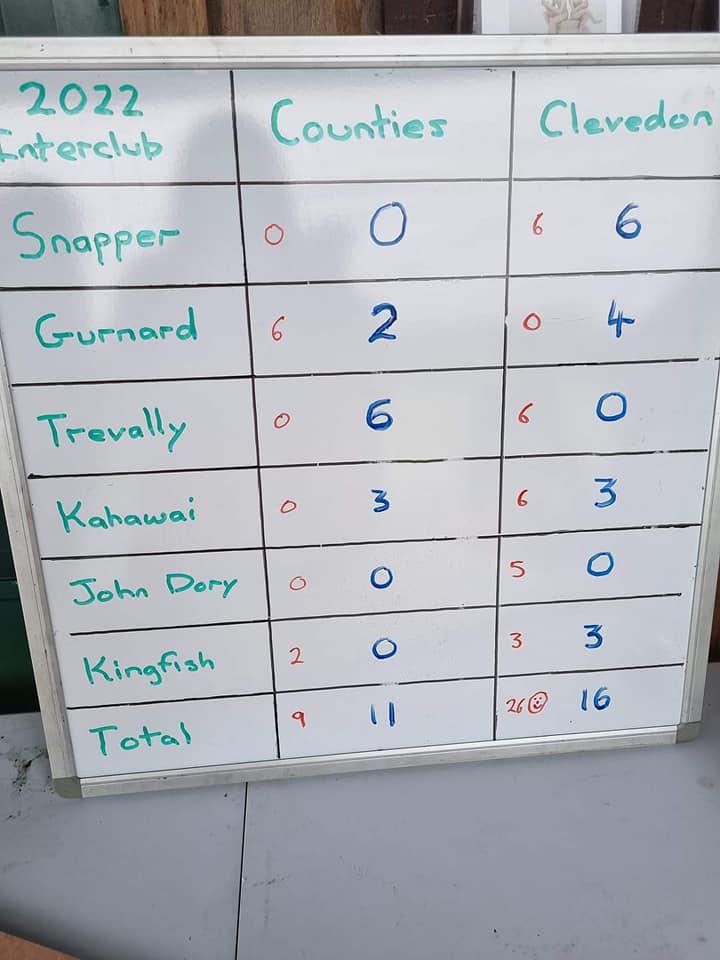 2022
Interclub
Counties
Clevedon
Snapper 0 0 6 6
Gurnard 6 2 0 4
Trevally 0 6 6 0
Kahawai 0 3 6 3
John Dory 0 0 5 0
Kingfish 2 0 3 3
Total 9 11 26 16